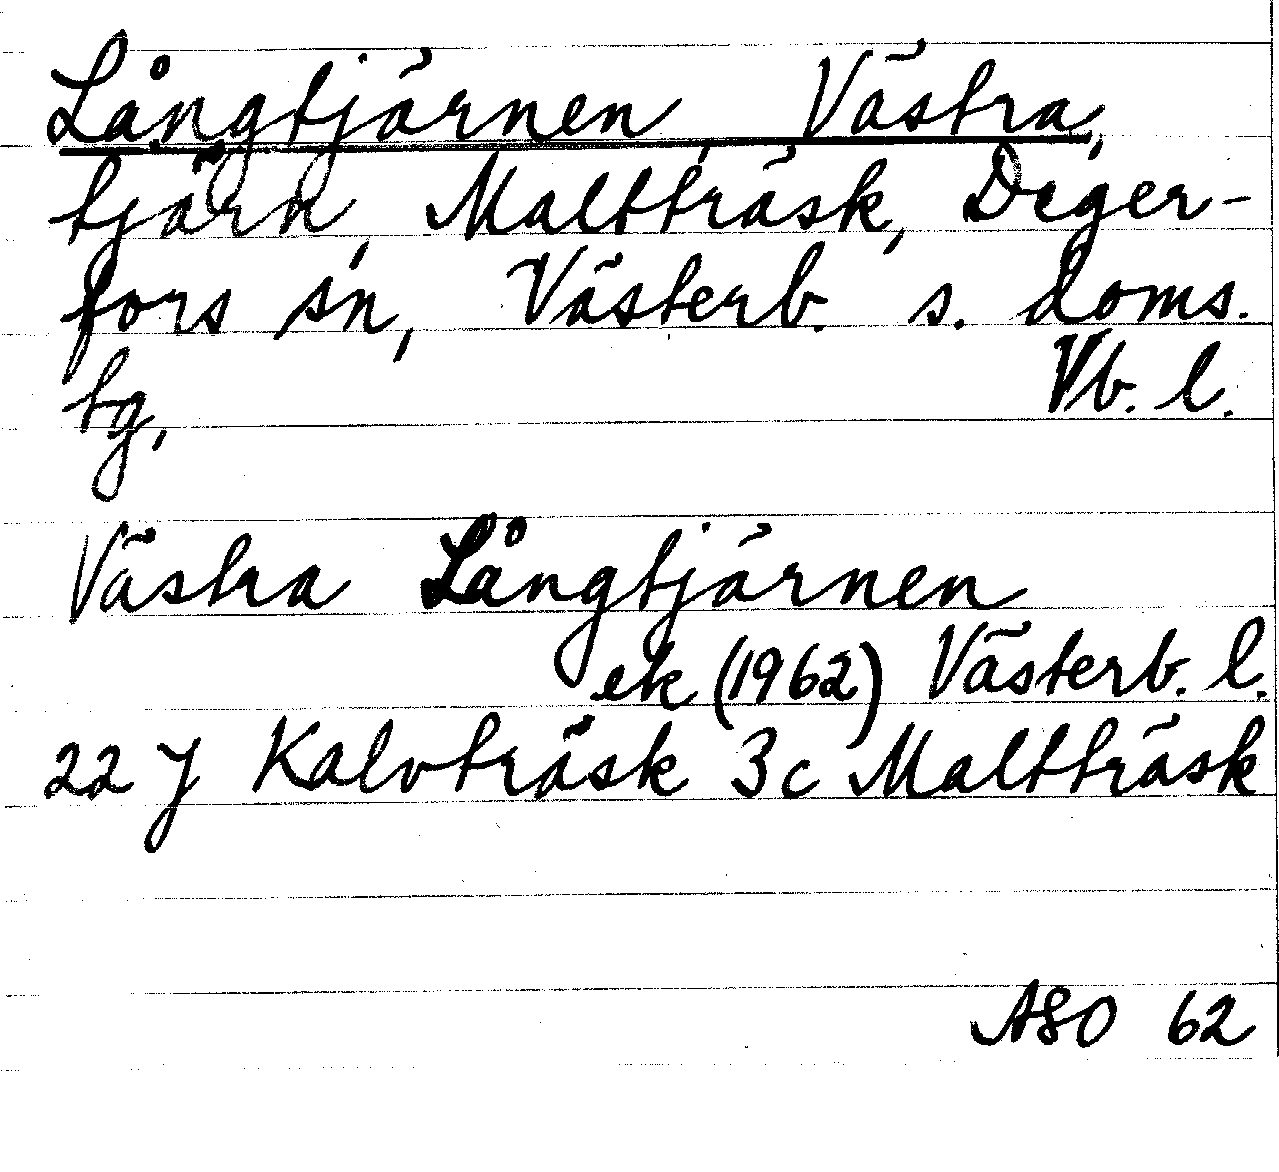 Långtjärnen, Västra,
tjärn, Maltträsk, Deger-
fors sn, Västerb. s. doms.
tg, Vb. l.
Västra Långtjärnen
ek (1962) Västerb. l.
22 J Kalvträsk 3c Maltträsk
ASO 62